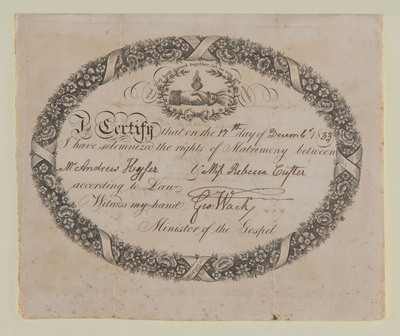 joined together let
I Certify that on the 17th day of Decemb.r 1833
I have solemnized the rights of Matrimony between
Mr Andrew Heyser & Miss Rebecca Cuyler
according to Law
Witness my hand Geo: Wack
Minister of the Gospel